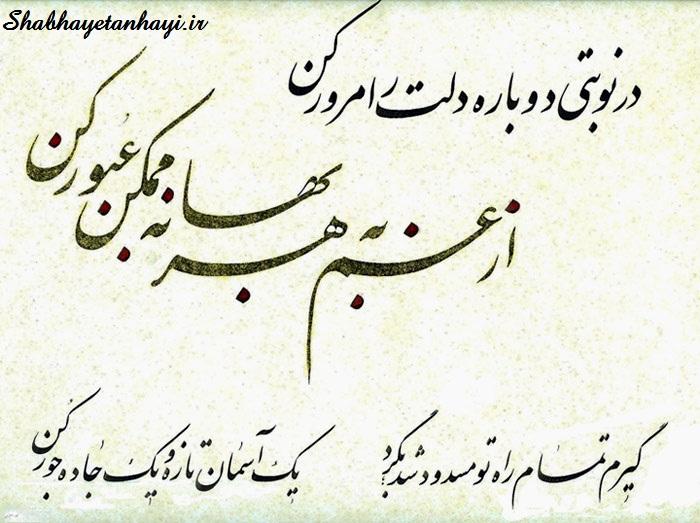 Shabhayetanhayi.ir
در نوبتی دوباره دلت را مرور کن
از غم به هر بهانه ممکن عبور کن
گیرم تمام راه تو مسدود شد بگرد
یک آسمان تازه و یک جاده جور کن